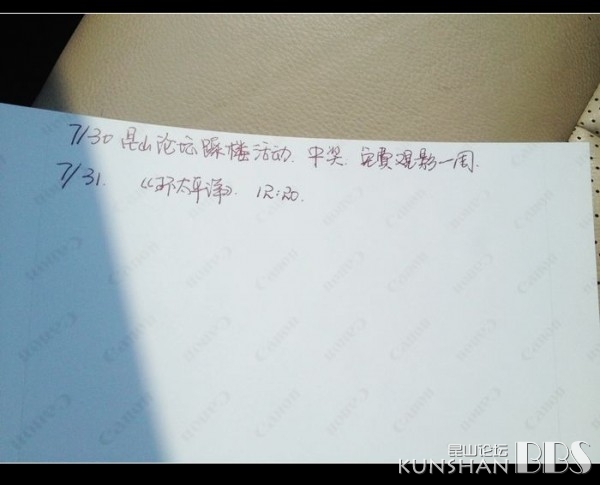 7/30 昆山论坛踩楼活动. 中奖. 免费观影一周.
7/31. 《环太平洋》. 12:20.
Canon
昆山论坛
KUNSHAN BBS